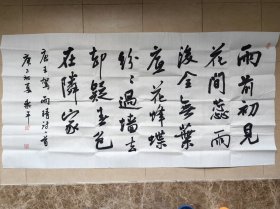 雨前初見
花間蕊雨
後全無葉
底花蜂蝶
紛〻過墙去
却疑春色
在隣家
唐王駕雨晴詩一首